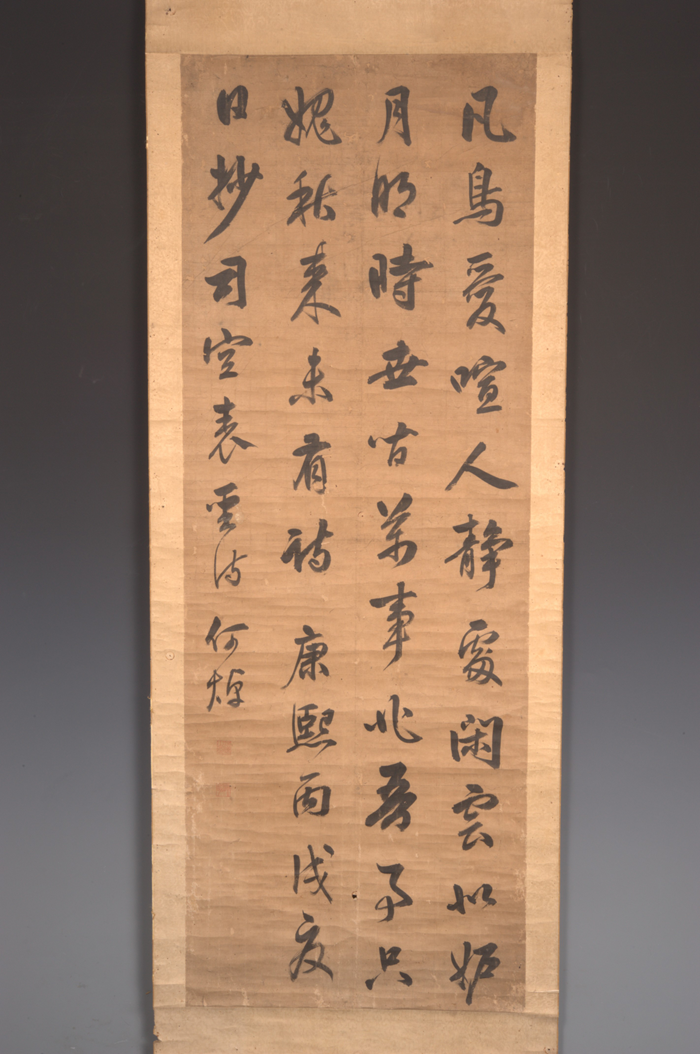 凡鳥愛喧人靜處閑雲似妒
月明時世間萬事非吾事只
媿秋來未有詩 康熙丙戌夏
日抄司空表聖詩 何焯